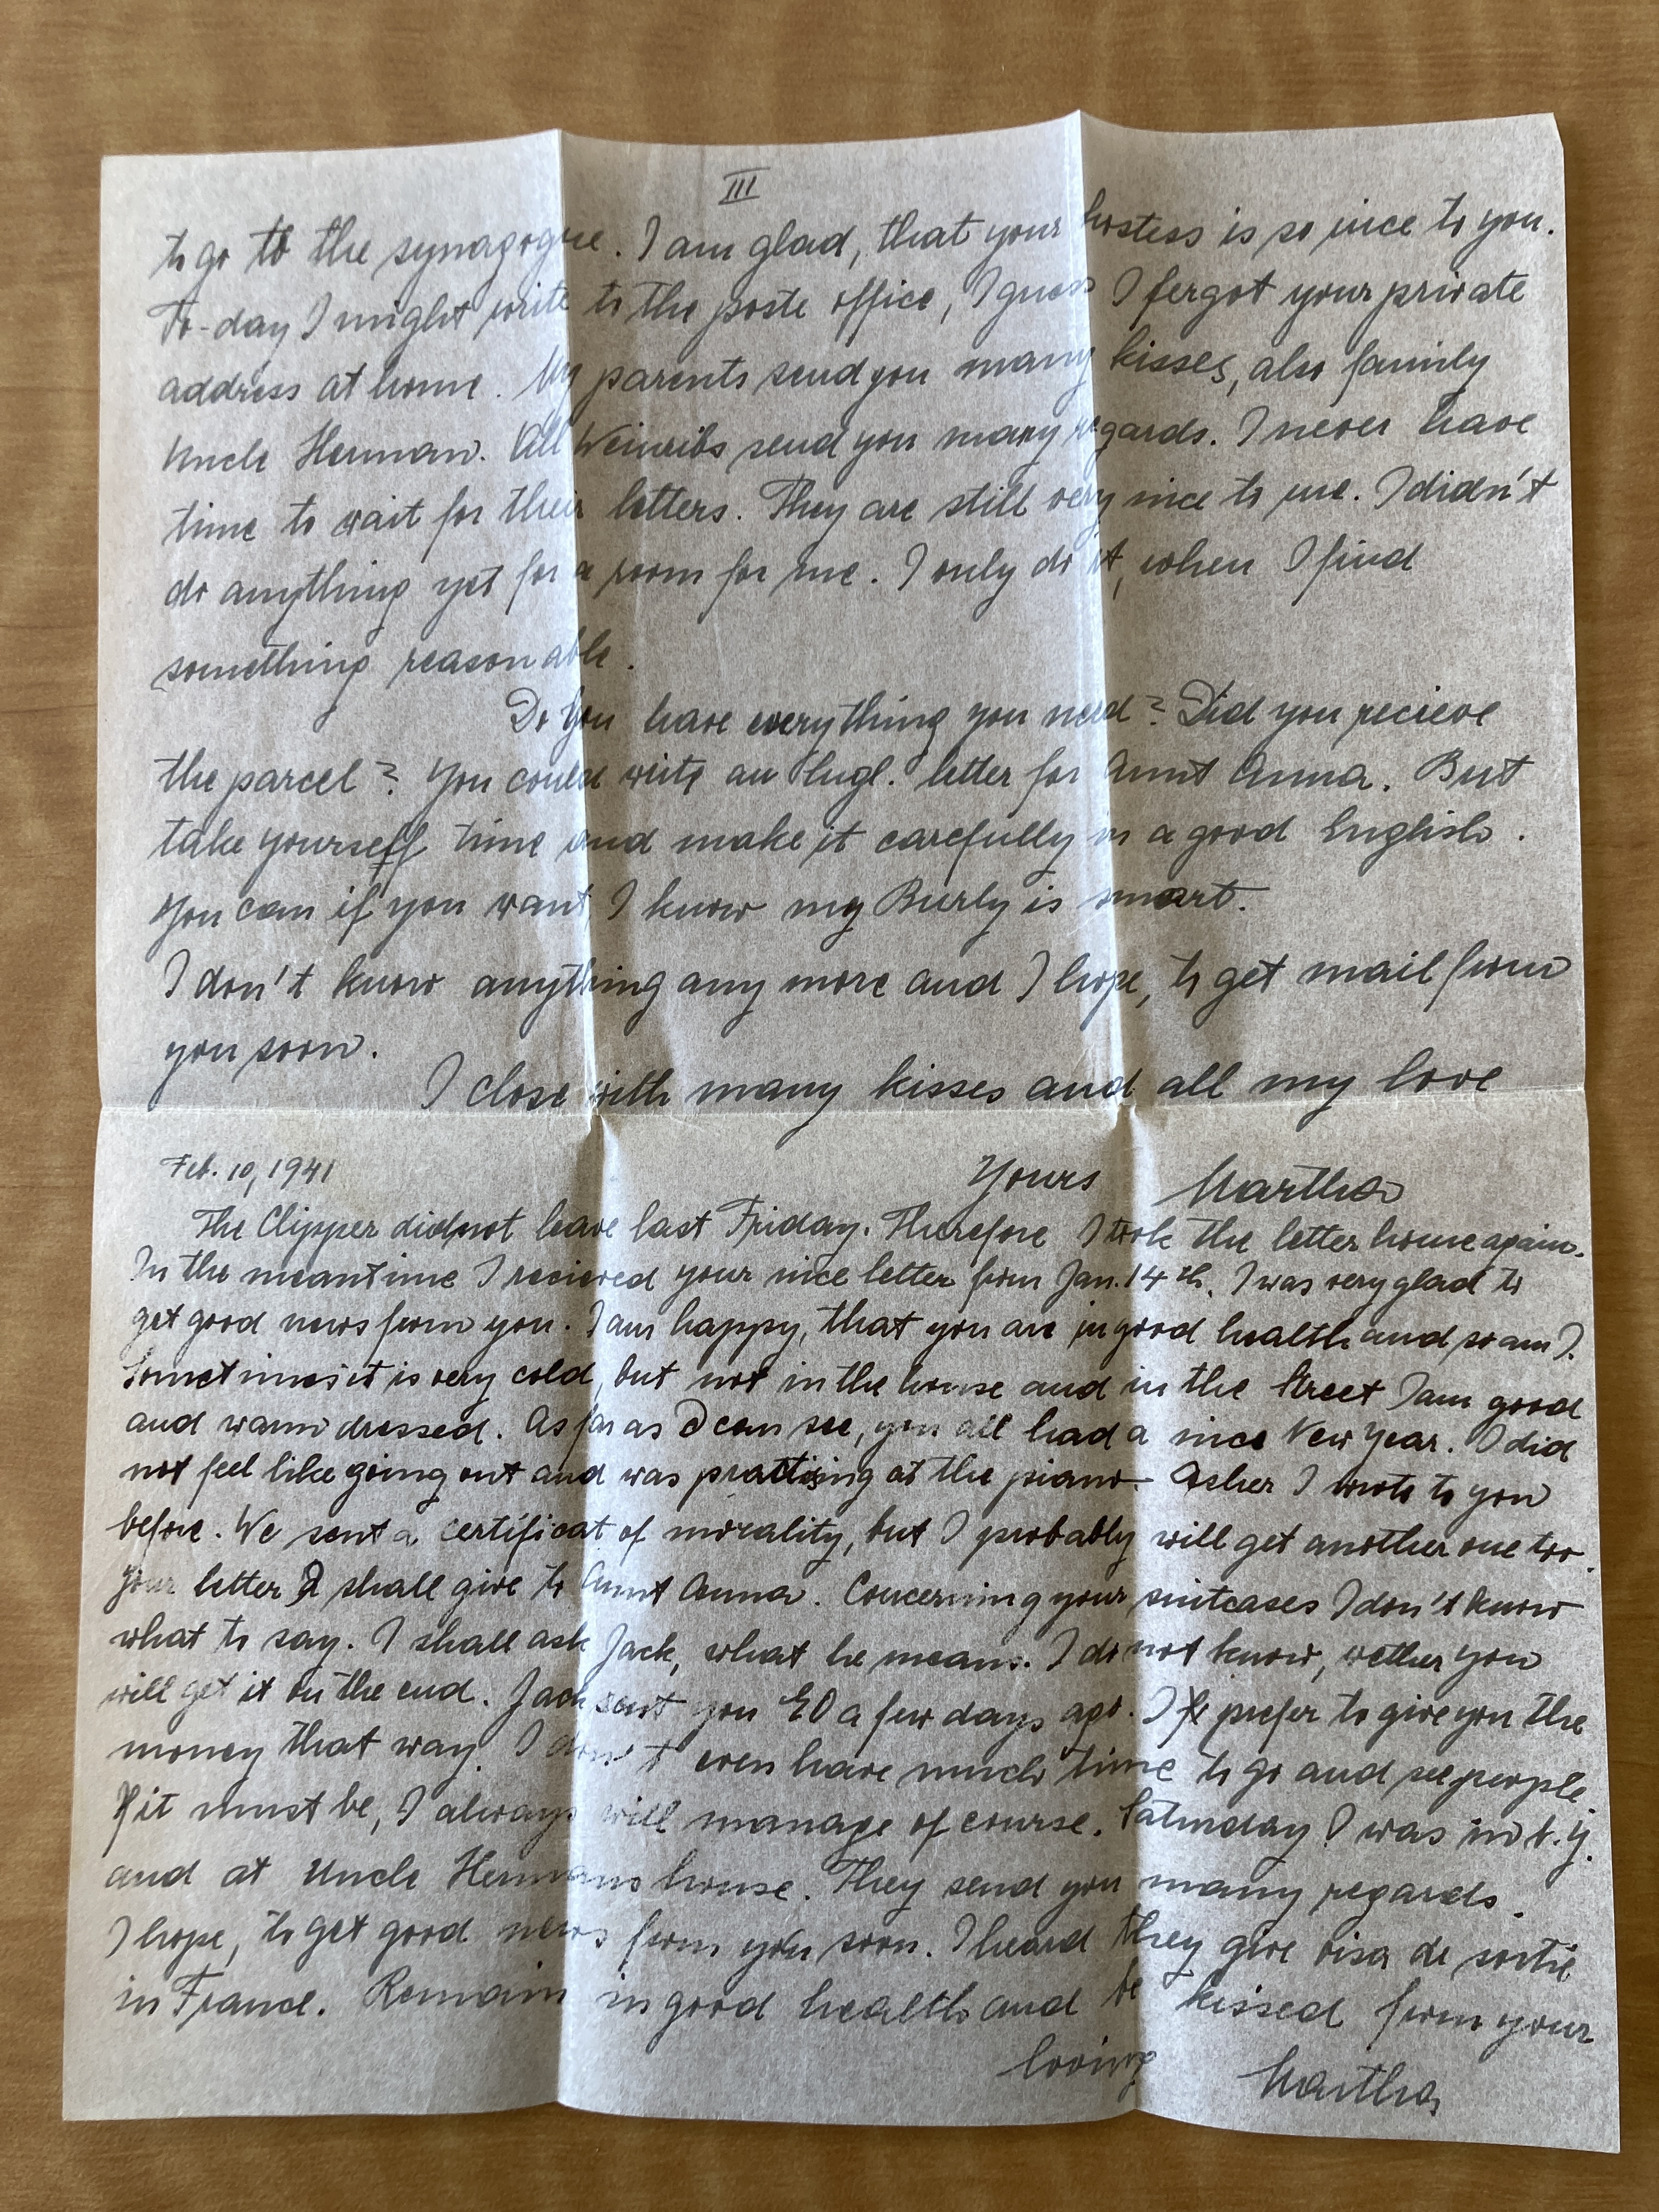 III
to go to the synagogue. I am glad, that your hostess is so nice to you.
To-day I might write to the poste office, I guess I fergot your private
address at home. My parents send you many kisses, also family
Uncle Herman. All Weinribs send you many regards. I never have
time to wait for their letters. They are still very nice to me. I didn't
do anything yet for a room for me. I only do it, when I find
something reasonable.
Do you have everything you need? Did you recieve
the parcel? You could write an Engl. letter for Aunt Anna. But
take yourself time and make it carefully in a good English.
You can if you want, I know my Burly is smart.
I don't know anything any more and I hope, to get mail from
you soon.
I close with many kisses and all my love
Yours Martha
Feb. 10, 1941
The Clipper did not leave last Friday. Therefore I took the letter home again.
In the meantime I recieved your nice letter from Jan. 14th. I was very glad to
get good news from you. I am happy, that you are in good health and so am I.
Sometimes it is very cold, but not in the house and in the street I am good
and warm dressed. As far as I can see, you all had a nice New Year. I did
not feel like going out and was practising at the piano. Asher I wrote to you
before. We sent a certificat of morality, but I probably will get another one too.
Your letter I shall give to Aunt Anna. Concerning your suitcases I don't know
what to say. I shall ask Jack, what he means. I do not know, wether you
will get it on the end. Jack sent you a few days ago. I prefer to give you the
money that way. I don't even have much time to go and see people.
If it must be, I always will manage of course. Saturday I was in N.Y.
and at Uncle Hermans house. They send you many regards.
I hope, to get good news from you soon. I heard they give visa de sortie
in France. Remain in good health and be kissed from your
loving Martha